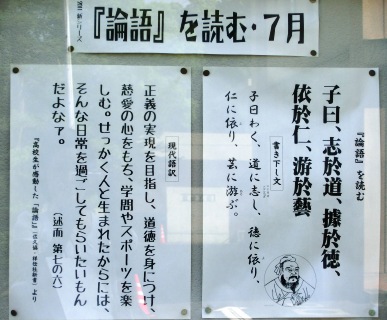 『論語』を読む・7月
『論語』を読む
子曰、志於道、據於徳、
依於仁、游於藝
書き下し文
子曰わく、道に志し、徳に依り、
仁に依り、芸に游ぶ。
現代語訳
正義の実現を目指し、道徳を身につけ、
慈愛の心をもち、学問やスポーツを楽
しむ。せっかく人と生まれたからには、
そんな日常を過ごしてもらいたいもん
だよなァ。
(述而 第七の六)
『高校生が感動した「論語」』(佐久協・祥伝社新書)より